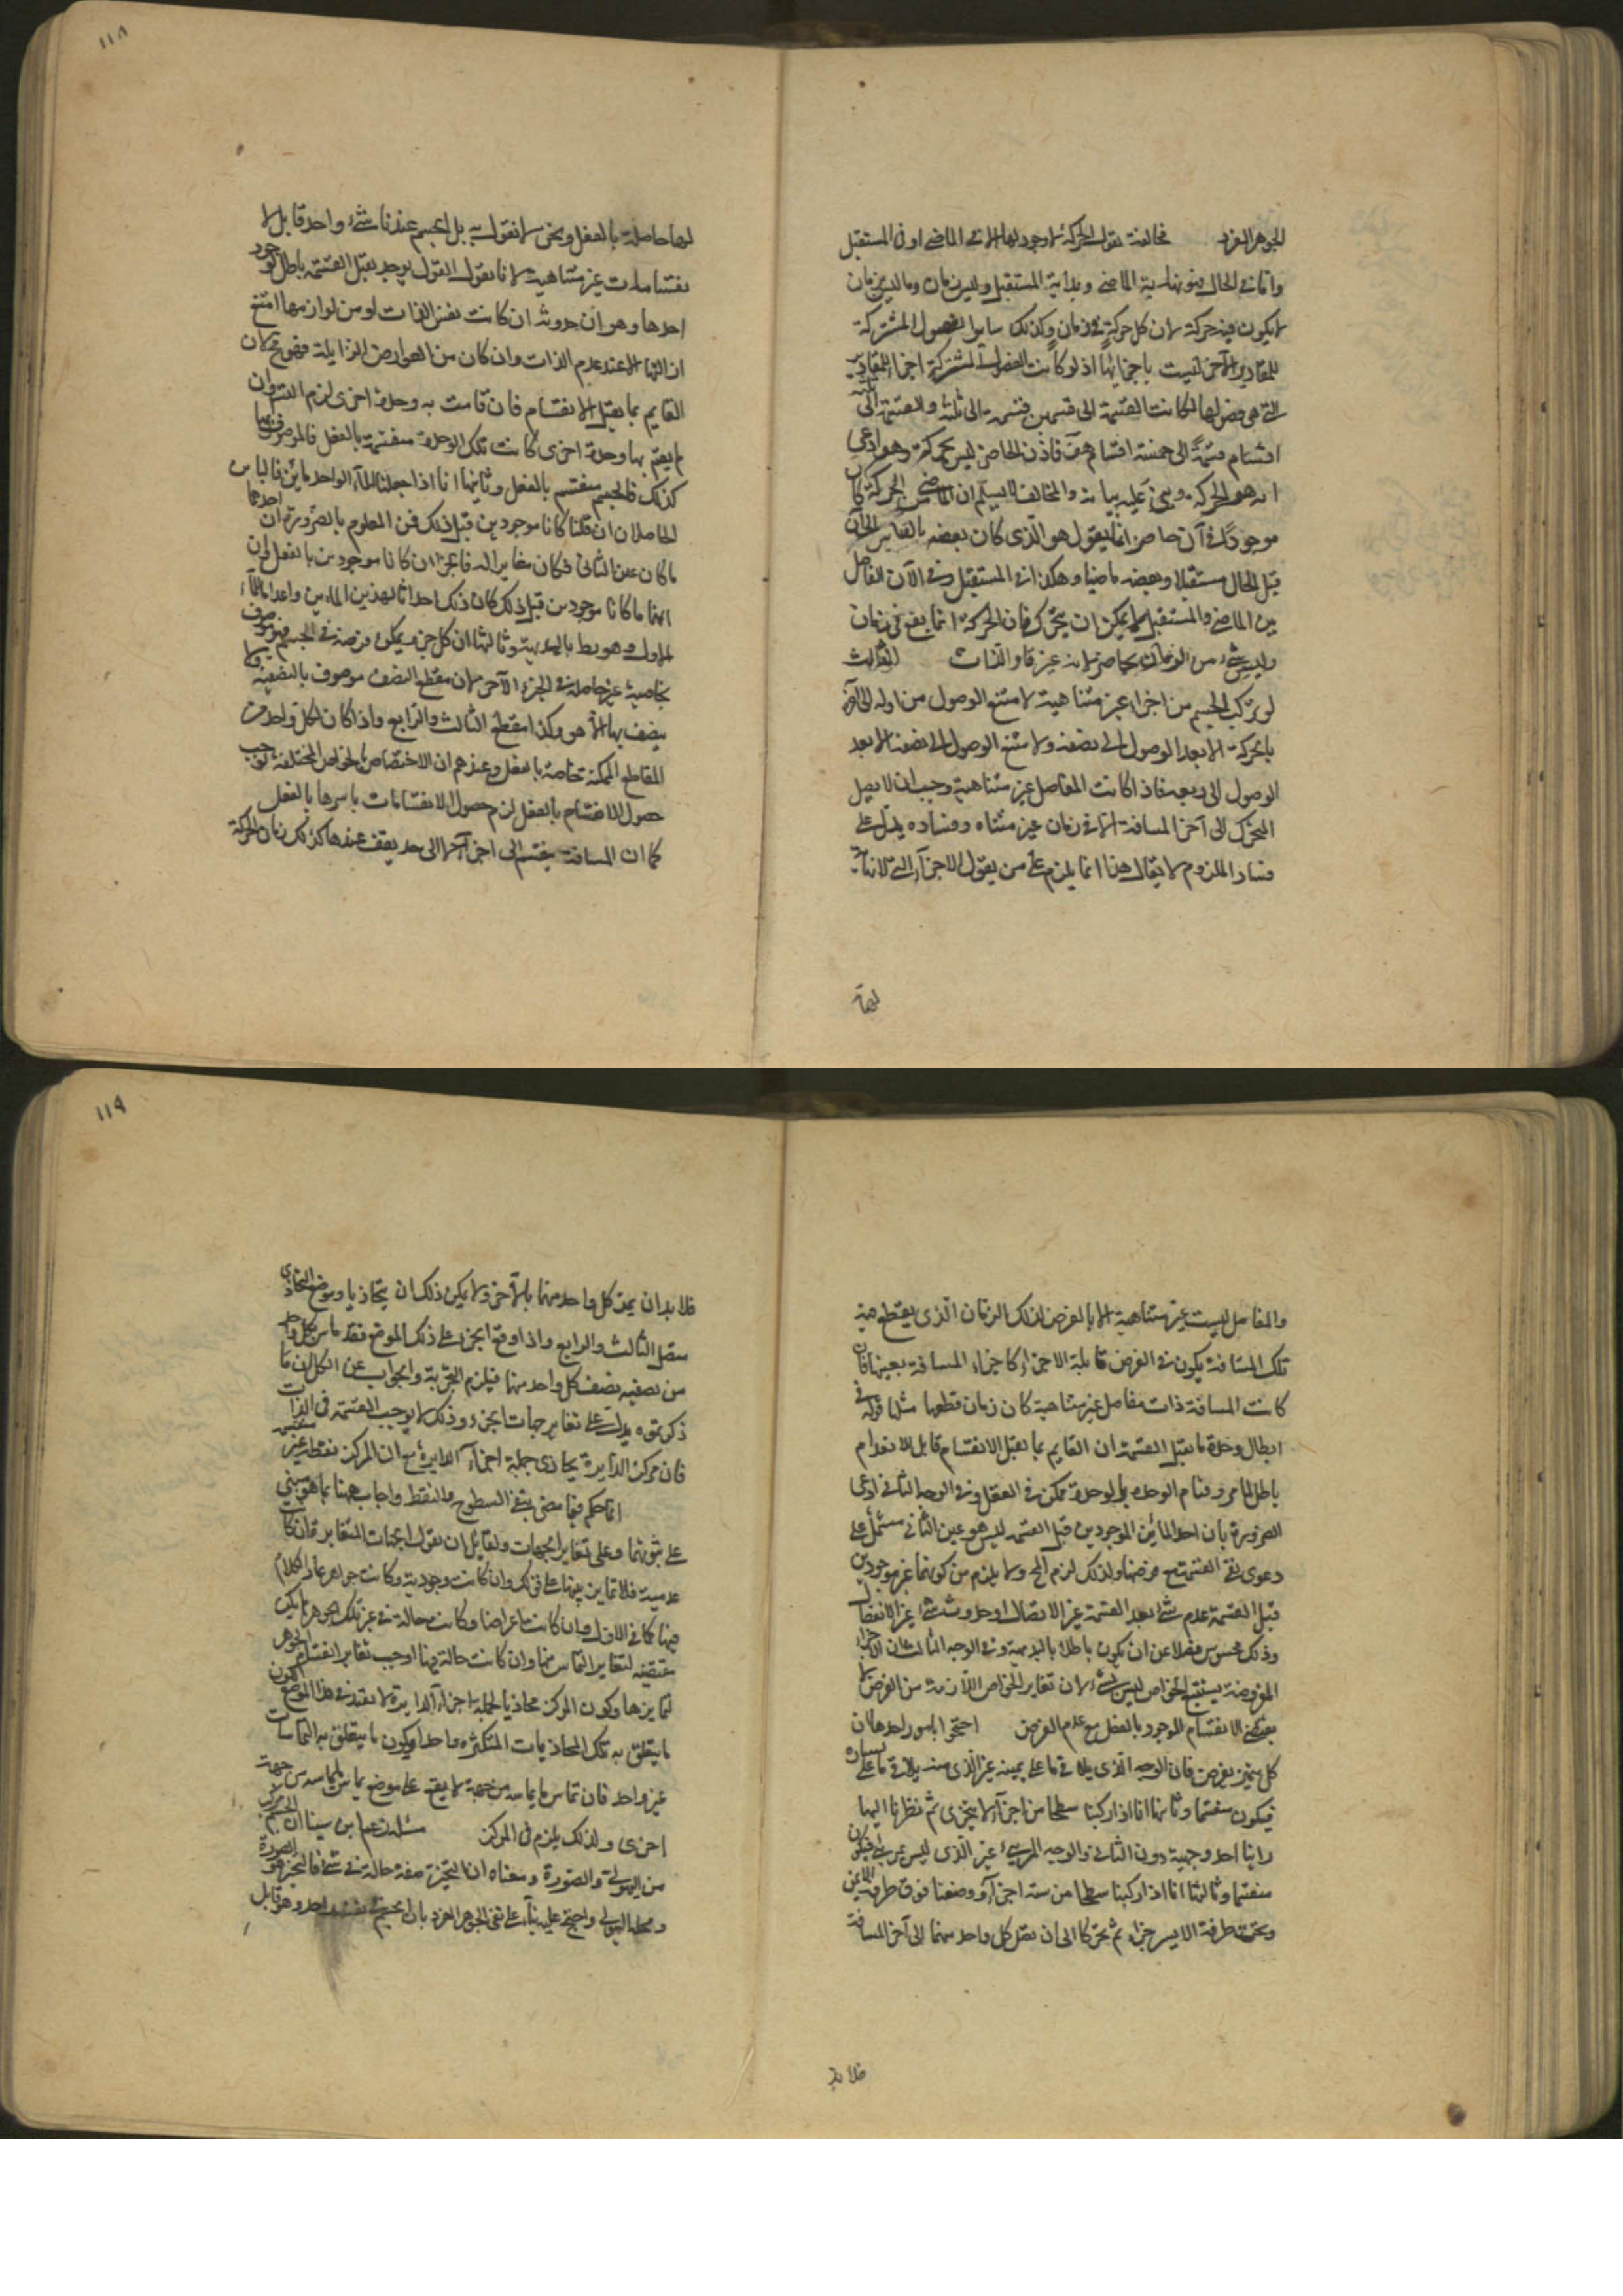 ١١٨
الجوهر الفرد مخالفة نقول الحركة لا وجود لها الا في الماضي او في المستقبل
واما في الحال فهو نهاية الماضي و بداية المستقبل وليس زمان وما ليس زمان
لا يكون فيه حركة لان كل حركة في زمان وكذلك سائر الفصول المشتركة
للمقادير الآخر ليست باجزائها اذ لو كانت الفصول المشتركة اجزاء المقادير
التي هي فصولها لكانت القسمة الى قسمين قسمة الى ثلثة والقسمة الى ثلثة
اقسام قسمة الى خمسة اقسام هف فاذن الحاضر ليس بحركة وهو ادعى
انه هو الحركة وبنى عليه بيانه والمخالف لا يسلم ان الماضي من الحركة كان
موجودا في آن حاضر انما يقول هو الذي كان بعضه بالقياس الى آن
قبل الحال مستقبلا وبعضه ماضيا وهكذا في المستقبل وفي الآن الفاصل
بين الماضي والمستقبل لا يمكن ان يتحرك فان الحركة انما يقع في زمان
وليس شيء من الزمان بحاضر لانه غير قار الذات الثالث
لو تركب الجسم من اجزاء غير متناهية لامتنع الوصول من اوله الى آخره
بالحركة الا بعد الوصول الى نصفه ولامتنع الوصول الى نصفه الا بعد
الوصول الى ربعه فاذا كانت المفاصل غير متناهية وجب ان لا يصل
المتحرك الى آخر المسافة الا في زمان غير متناه وفساده يدل على
فساد الملزوم لا يقال هذا انما يلزم على من يقول الاجزاء التي لا نهاية
لها حاصلة بالفعل ونحن لا نقول به بل الجسم عندنا شيء واحد قابل لا
نقسامات غير متناهية لانا نقول القول بوجود يقبل القسمة باطل لوجوه
احدها وهو ان حدوثه ان كانت نفس الذات او من لوازمها امتنع
ازالتها الا عند عدم الذات وان كان من العوارض الزايلة فهو مح لان
القايم بما يقبل الانقسام فان قامت به وحدة اخرى لزم التس وان
لم يقم بها وحدة اخرى كانت تلك الوحدة منقسمة بالفعل فالموصوف بها
كذلك فالجسم منقسم بالفعل وثانيها انا اذا جعلنا الماء الواحد مائين فالماان
الحاصلان ان قلنا كانا موجودين قبل ذلك فمن المعلوم بالضرورة ان احدهما
ما كان عين الثاني فكان مغايرا له فالجزءان كانا موجودين بالفعل وان
انهما ما كانا موجودين قبل ذلك كان ذلك احداثا لهذين المائين واعداما للماء
الاول وهو بط بالبديهية وثالثها ان كل جزء يمكن فرضه في الجسم فهو موصوف
بخاصية غير حاصلة في الجزء الآخر لان مقطع النصف موصوف بالنصفية ولا
يتصف بها الا هو وكذا مقطع الثالث والرابع واذا كان لكل واحد من
المقاطع الممكنة خاصة بالفعل وعندهم ان الاختصاص بالخواص المختلفة يوجب
حصول الانقسام بالفعل لزم حصول الانقسامات باسرها بالفعل
كما ان المسافة ينقسم الى اجزاء لا الى حد يقف عندها كذلك زمان الحركة
لها حا
١١٩
والمفاصل ليست غير متناهية الا بالفرض لذلك الزمان الذي يقطع فيه
تلك المسافة يكون في الفرض قابلة الاجزاء كاجزاء المسافة بعينها فان
كانت المسافة ذات مفاصل غير متناهية كان زمان قطعها مثلها قوله في
ابطال وحدة ما يقبل القسمة ان القايم بما يقبل الانقسام قابل للانقسام
باطل لما مر وقيام الوحدة بالوحدة ممكن في العقل وفي الوجه الثاني ادعى
الضرورة بان احد المائين الموجودين قبل القسمة ليس هو عين الثاني مشتمل على
دعوى نفي القسمة مع فرضها ولذلك لزم المح ولا يلزم من كونهما غير موجودين
قبل القسمة عدم شيء بعد القسمة غير الاتصال وحدوث شيء غير الانفصال
وذلك محسوس فضلا عن ان يكون باطلا بالبديهية وفي الوجه الثالث ان الاجزاء
المفروضة يستتبع الخواص ليس بشيء لان تغاير الخواص اللازمة من الفرض لا
يقتضي الانقسام الموجود بالفعل مع عدم الفرض احتجوا بامور احدها ان
كل متحيز يفرض فان الوجه الذي يلاقي ما على يمينه غير الذي منه يلاقي ما على يساره
فيكون منقسما وثانيها انا اذا ركبنا سطحا من اجزاء لا يتجزى ثم نظرنا اليها
راينا احد وجهيه دون الثاني والوجه المرئي غير الذي ليس بمرئي فيكون
منقسما وثالثها انا اذا ركبنا سطحا من ستة اجزاء ووضعنا فوق طرفه الايمن
وتحت طرفه الايسر جزءا ثم تحركا الى ان يصل كل واحد منهما الى آخر المسافة
فلا بد ان يمر كل واحد منهما بالآخر ولا يمكن ذلك الا ان يتحاذيا وموضع التحاذي
متصل الثالث والرابع واذا وقع الجزء على ذلك الموضع فقد ماس بكل واحد
من نصفيه نصف كل واحد منهما فيلزم التجزية والجواب عن الكل ان ما
ذكرتموه يدل على تغاير جهات الجزء وذلك لا يوجب القسمة في الذات
فان مركز الدايرة يحاذي جملة اجزاء الدايرة مع ان المركز نقطة غير منقسمة
انما حكم فيما مضى بنفي السطوح والنقط واجاب ههنا بما هو مبني
على ثبوتها وعلى تغاير الجهات ولقايل ان يقول الجهات المتغايرة ان كانت
عدمية فلا تمايز بينها على قولك وان كانت وجودية وكانت جواهر عاد الكلام
فيها كما في الاول وان كانت اعراضا وكانت حالة في غير تلك الجواهر لم يكن
مقتضية لتغاير التماس منها وان كانت حالة فيها اوجب تغايرا نقسام الجوهر
لتمايزها وكون المركز محاذيا لجملة اجزاء الدايرة لا يفيد في هذا الموضع لكون
ما يتعلق به تلك المحاذيات المتكثرة واحدا ويكون ما يتعلق به التماسات
غير واحد فان تماس ما يماسه من جهة لا يقع على موضع يماس ما يماسه من جهة
اخرى ولذلك يلزم في المركز مسئلة زعم ابن سينا ان الجسم مركب
من الهيولى والصورة ومعناه ان التحيز صفة حالة في شيء فالتحيز هو الصورة
ومحله الهيولى واحتج عليه بناء على نفي الجوهر الفرد بان الجسم في نفسه واحد وهو قابل
فلا بد